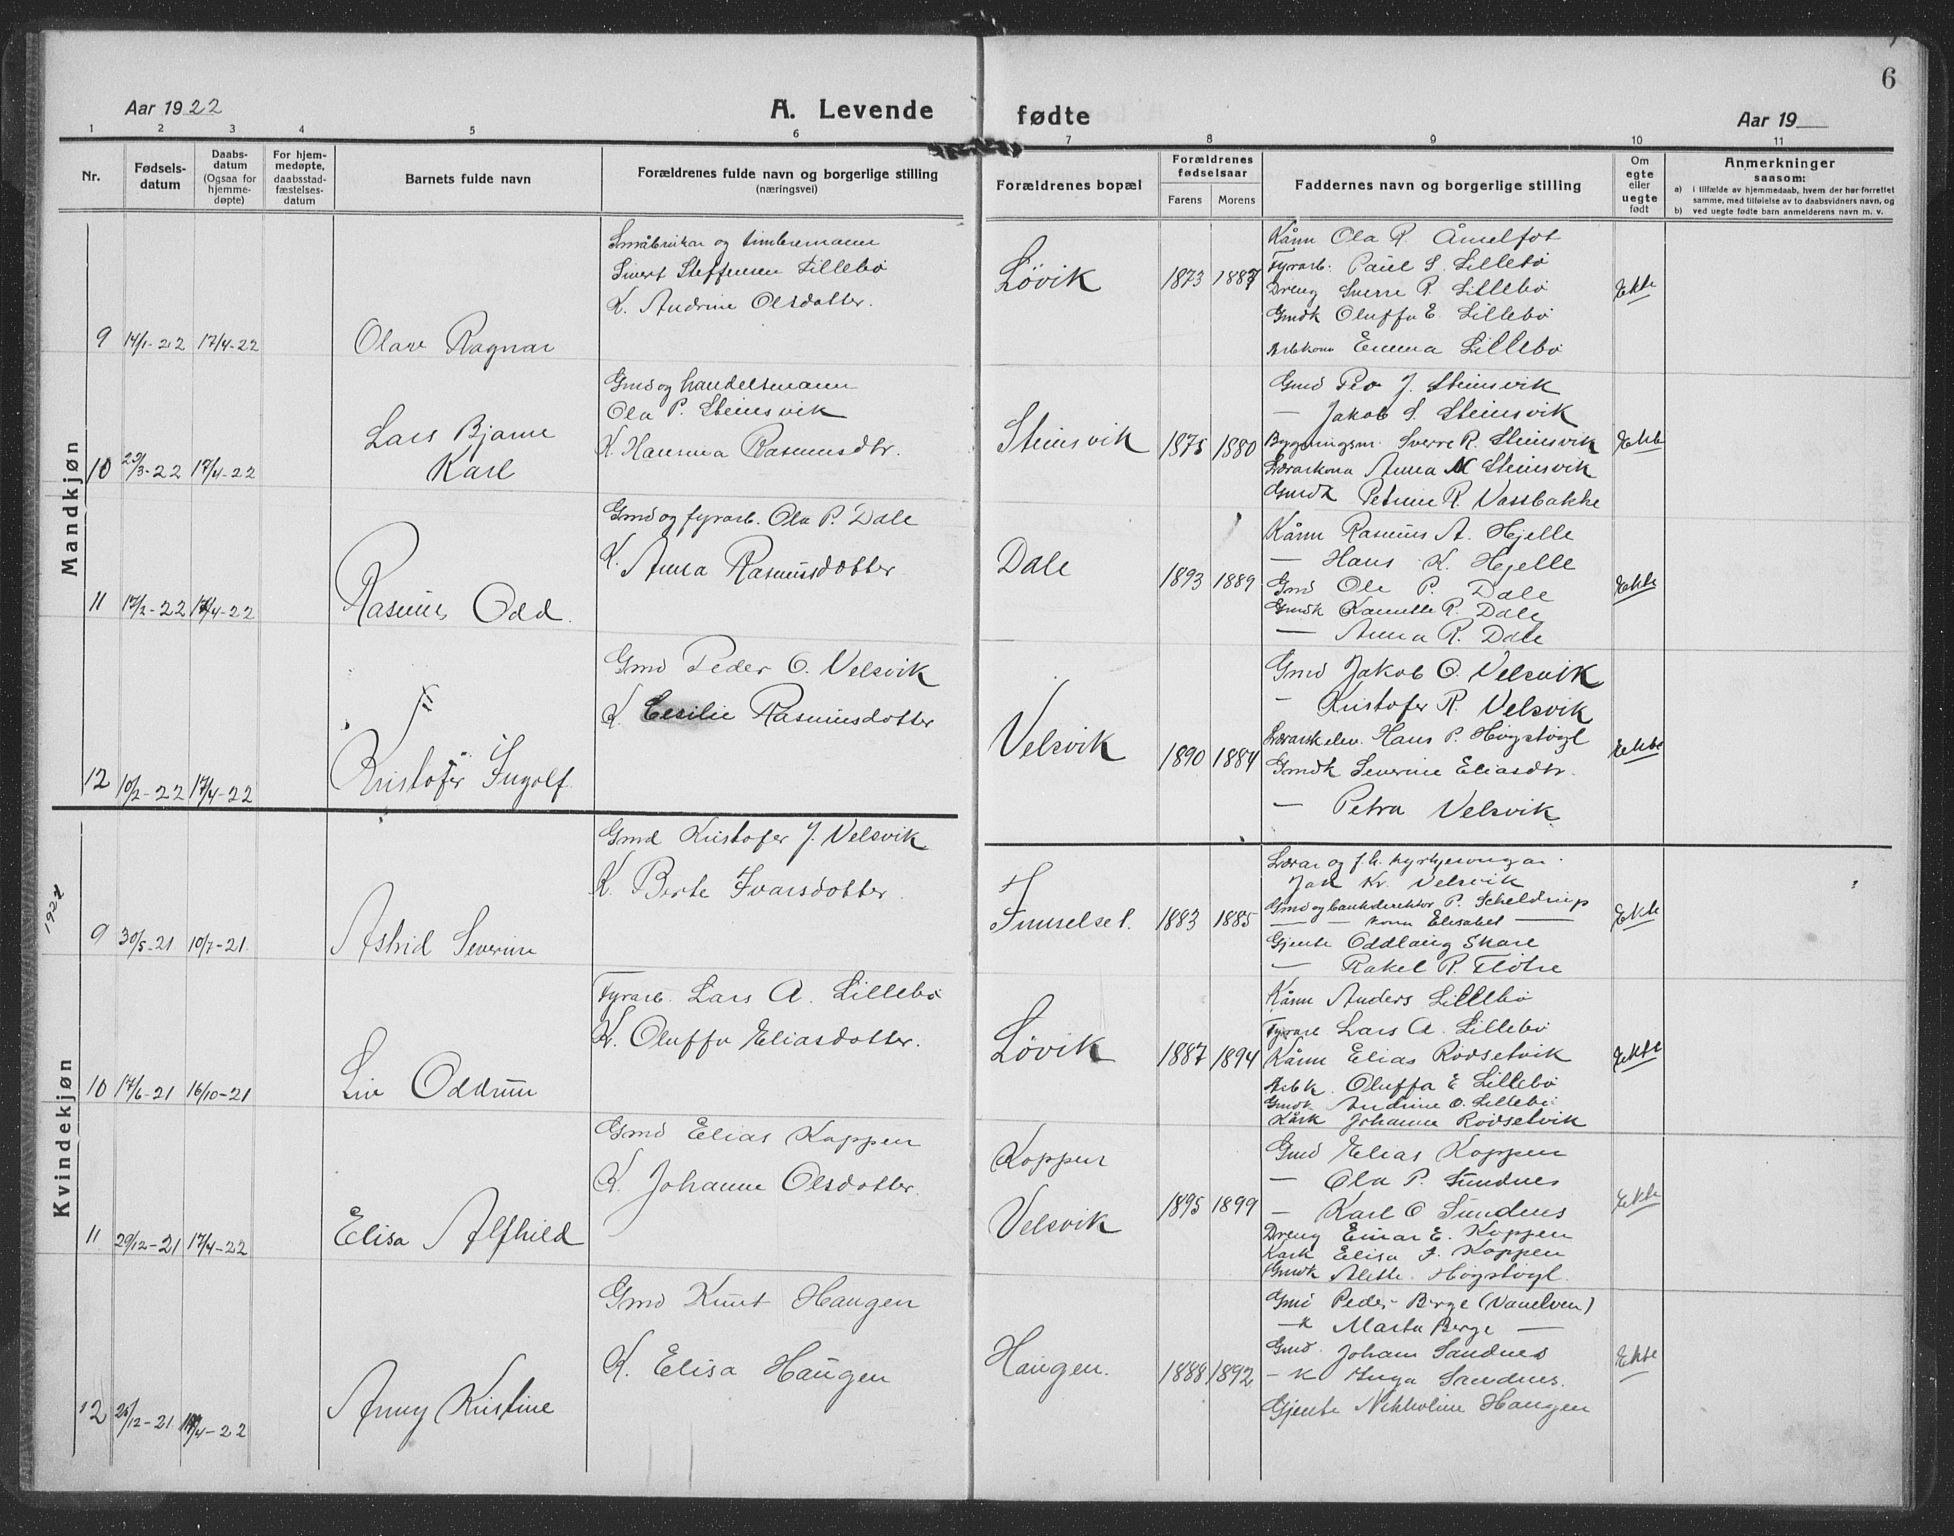 6
Aar 1922
A. Levende fødte
Aar 19
1 2 3 4 5 6 7 8 9 10 11
Nr.
Fødsels-
datum
Daabs-
datum
(Ogsaa for
hjemme-
døpte)
For hjem-
medøpte,
daabsstad-
fæstelses-
datum
Barnets fulde navn
Forældrenes fulde navn og borgerlige stilling
(næringsvei)
Forældrenes bopæl
Forældrenes
fødselsaar
Farens Morens
Faddernes navn og borgerlige stilling
Om
egte
eller
uegte
født
Anmerkninger
saasom:
a) i tilfælde av hjemmedaab, hvem der har forrettet
samme, med tilføielse av to daabsvidners navn, og
b) ved uegte fødte barn anmelderens navn m. v.
Mandkjøn
9 14/1-22 17/4-22
Olav Ragnar
Småbrukar og timbremann
Sivert Steffensen Lillebø
K. Andrine Olsdotter.
Løvik
1873 1887
Kårm Ola R. Åmelfot
Fyrarb. Paul S. Lillebø
Dreng Sverre P. Lillebø
Gmdk Oluffa E Lillebø
Arbkona Emma Lillebø
Ekte
10 29/3-22 17/4-22
Lars Bjarne
Karl
Gmd og handelsmann
Ola P. Steinsvik
K. Hansina Rasmusdtr.
Steinsvik
1875 1880
Gmd Per J. Steinsvik
— Jakob S. Steinsvik
Bygningsm. Sverre R. Steinsvik
Lærarkona Anna M Steinsvik
Gmdk Petrine R. Vassbakke
Ekte
11 17/2-22 17/4-22
Rasmus Odd.
Gmd og fyrarb. Ola P. Dale
K. Anna Rasmusdotter
Dale
1893 1889
Kårm Rasmus A. Hjelle
— Hans K. Hjelle
Gmd Ole P. Dale
Gmdk Kamille R. Dale
— Anna R. Dale
Ekte
12 10/2-22 17/4-22
Kristofer Ingolf
Gmd Peder O. Velsvik
K. Cecilie Rasmusdotter
Velsvik
1890 1884
Gmd Jakob O. Velsvik
— Kristofer R. Velsvik
Lærarskelev. Hans P. Høgstøyl
Gmdk Severine Eliasdtr.
— Petra Velsvik
Ekte
Kvindekjøn
9 30/5-21 10/7-21
Astrid Severine
Gmd Kristofer J. Velsvik
K. Berte Ivarsdotter
1883 1885
Lærar og f.h. kyrkjesongar
Jak Kr. Velsvik
Gmd og bankdirektør P. Scheldrup
— — kona Elisabet —
Gjente Oddlaug Skare
— Rakel R. Fløtre
Ekte
10 17/6-21 16/10-21
Liv Oddrun
Fyrarb. Lars A. Lillebø
K. Oluffa Eliasdotter.
Løvik
1887 1894
Kårm Anders Lillebø
Fyrarb Lars A. Lillebø
Kårm Elias Rødsetvik
Arbk. Oluffa E Lillebø
Gmdk Andrine O. Lillebø
Kårk Johanne Rødsetvik
Ekte
11 29/12-21 17/4-22
Elisa Alfhild
Gmd Elias Koppen
K. Johanne Olsdotter.
Koppen
Velsvik
1895 1899
Gmd Elias Koppen
— Ola P. Sundnes
— Karl O Sundnes
Dreng Einar E. Koppen
Kark Elisa J. Koppen
Gmdk Alette Høgstøyl.
Ekte
12 25/12-21 17/4-22
Anny Kristine
Gmd Knut Haugen
K. Elisa Haugen
Haugen.
1888 1892
Gmd Peder Berge (Vanelven)
—K Marta Berge —
Gmd. Johan Sandnes
—K Inga Sandnes.
Gjente Nikkoline Haugen
Ekte